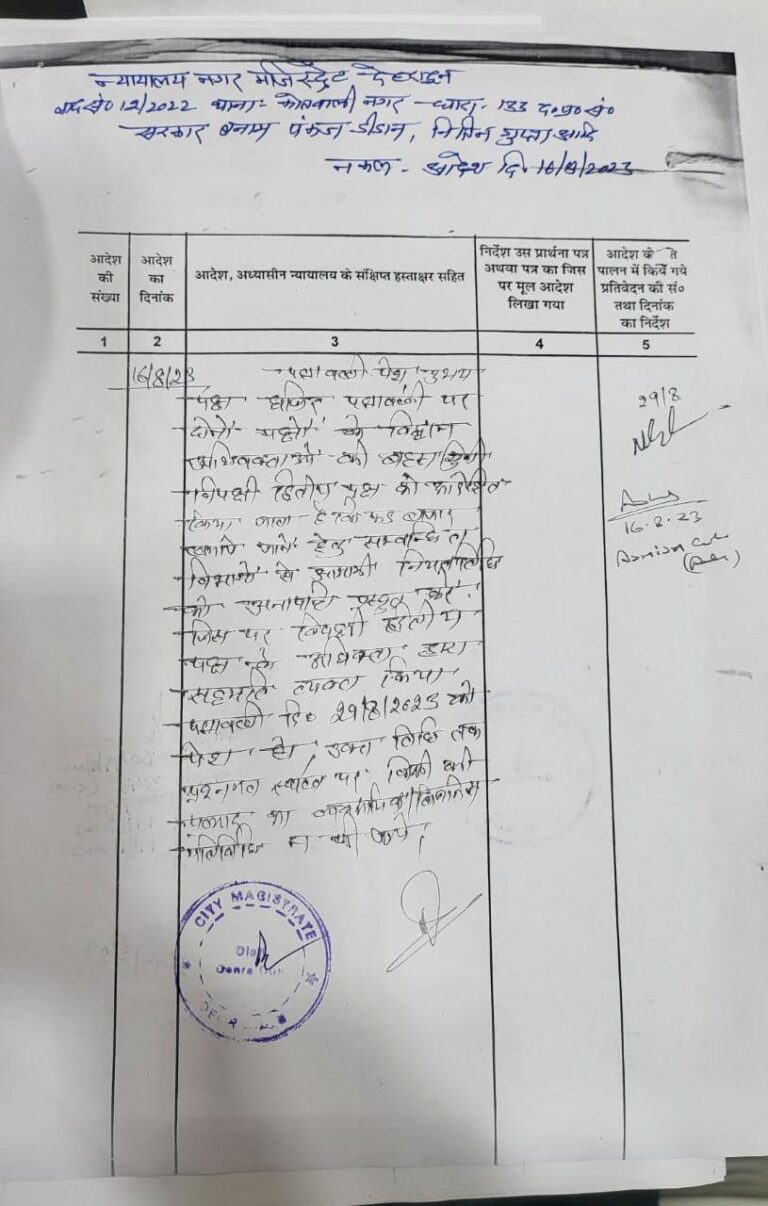 न्यायालय नगर मजिस्ट्रेट देहरादून
वाद सं० 12/2022 थाना- कोतवाली नगर - धारा- 133 द०प्र०सं०
सरकार बनाम पंकज, गुप्ता आदि
नकल - आदेश दि. 16/8/2023
आदेश की संख्या
आदेश का दिनांक
आदेश, अध्यासीन न्यायालय के संक्षिप्त हस्ताक्षर सहित
निर्देश उस प्रार्थना पत्र अथवा पत्र का जिस पर मूल आदेश लिखा गया
आदेश के ते पालन में किये गये प्रतिवेदन की सं० तथा दिनांक का निर्देश
1 2 3 4 5
16/8/23
पत्रावली पेश उभय
पक्ष हाजिर पत्रावली पर
दोनों पक्षों के विद्वान
अधिवक्ताओं की बहस सुनी
विपक्षी द्वितीय पक्ष को आदेशित
किया जाता है कि बाजार
लगाये जाने हेतु सम्बन्धित
विभागों से आगामी नियत तिथि
को अनापत्ति प्रस्तुत करें।
जिस पर विपक्षी द्वितीय
पक्ष के अधिवक्ता द्वारा
सहमति व्यक्त किया
पत्रावली दि० 29/8/2023 को
पेश हो, उक्त तिथि तक
प्रश्नगत स्थल पर किसी भी
प्रकार का
गतिविधि न की जाये।
29/8
16.8.23
CITY MAGISTRATE